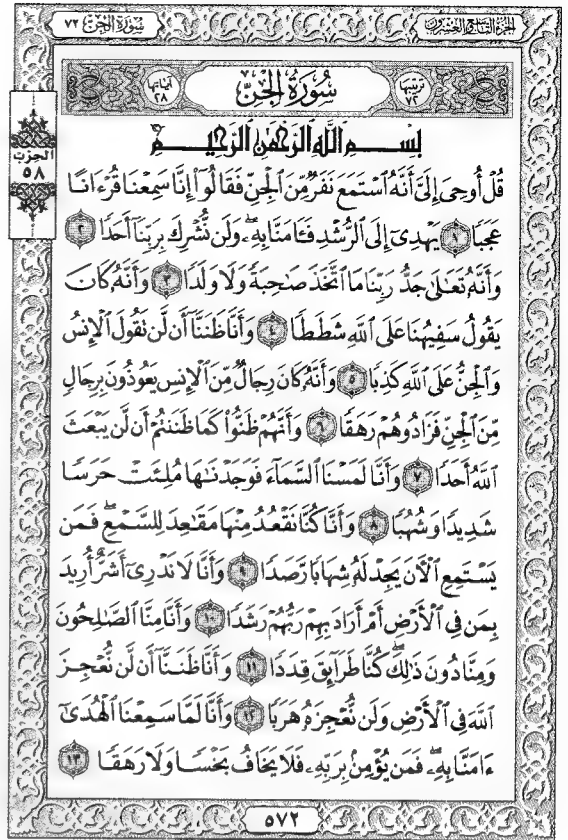 الجزء التاسع والعشرون
سورة الجن ٧٢
ترتيبها ٧٢
سُورَةُ الجِنِّ
آياتها ٢٨
بِسْمِ ٱللَّهِ ٱلرَّحْمَٰنِ ٱلرَّحِيمِ
الحزب
٥٨
قُلْ أُوحِىَ إِلَىَّ أَنَّهُ ٱسْتَمَعَ نَفَرٌ مِّنَ ٱلْجِنِّ فَقَالُوٓا۟ إِنَّا سَمِعْنَا قُرْءَانًا
عَجَبًا ١ يَهْدِىٓ إِلَى ٱلرُّشْدِ فَـَٔامَنَّا بِهِۦ ۖ وَلَن نُّشْرِكَ بِرَبِّنَآ أَحَدًا ٢
وَأَنَّهُۥ تَعَٰلَىٰ جَدُّ رَبِّنَا مَا ٱتَّخَذَ صَٰحِبَةً وَلَا وَلَدًا ٣ وَأَنَّهُۥ كَانَ
يَقُولُ سَفِيهُنَا عَلَى ٱللَّهِ شَطَطًا ٤ وَأَنَّا ظَنَنَّآ أَن لَّن تَقُولَ ٱلْإِنسُ
وَٱلْجِنُّ عَلَى ٱللَّهِ كَذِبًا ٥ وَأَنَّهُۥ كَانَ رِجَالٌ مِّنَ ٱلْإِنسِ يَعُوذُونَ بِرِجَالٍ
مِّنَ ٱلْجِنِّ فَزَادُوهُمْ رَهَقًا ٦ وَأَنَّهُمْ ظَنُّوا۟ كَمَا ظَنَنتُمْ أَن لَّن يَبْعَثَ
ٱللَّهُ أَحَدًا ٧ وَأَنَّا لَمَسْنَا ٱلسَّمَآءَ فَوَجَدْنَٰهَا مُلِئَتْ حَرَسًا
شَدِيدًا وَشُهُبًا ٨ وَأَنَّا كُنَّا نَقْعُدُ مِنْهَا مَقَٰعِدَ لِلسَّمْعِ ۖ فَمَن
يَسْتَمِعِ ٱلْءَانَ يَجِدْ لَهُۥ شِهَابًا رَّصَدًا ٩ وَأَنَّا لَا نَدْرِىٓ أَشَرٌّ أُرِيدَ
بِمَن فِى ٱلْأَرْضِ أَمْ أَرَادَ بِهِمْ رَبُّهُمْ رَشَدًا ١٠ وَأَنَّا مِنَّا ٱلصَّٰلِحُونَ
وَمِنَّا دُونَ ذَٰلِكَ ۖ كُنَّا طَرَآئِقَ قِدَدًا ١١ وَأَنَّا ظَنَنَّآ أَن لَّن نُّعْجِزَ
ٱللَّهَ فِى ٱلْأَرْضِ وَلَن نُّعْجِزَهُۥ هَرَبًا ١٢ وَأَنَّا لَمَّا سَمِعْنَا ٱلْهُدَىٰٓ
ءَامَنَّا بِهِۦ ۖ فَمَن يُؤْمِنۢ بِرَبِّهِۦ فَلَا يَخَافُ بَخْسًا وَلَا رَهَقًا ١٣
٥٧٢